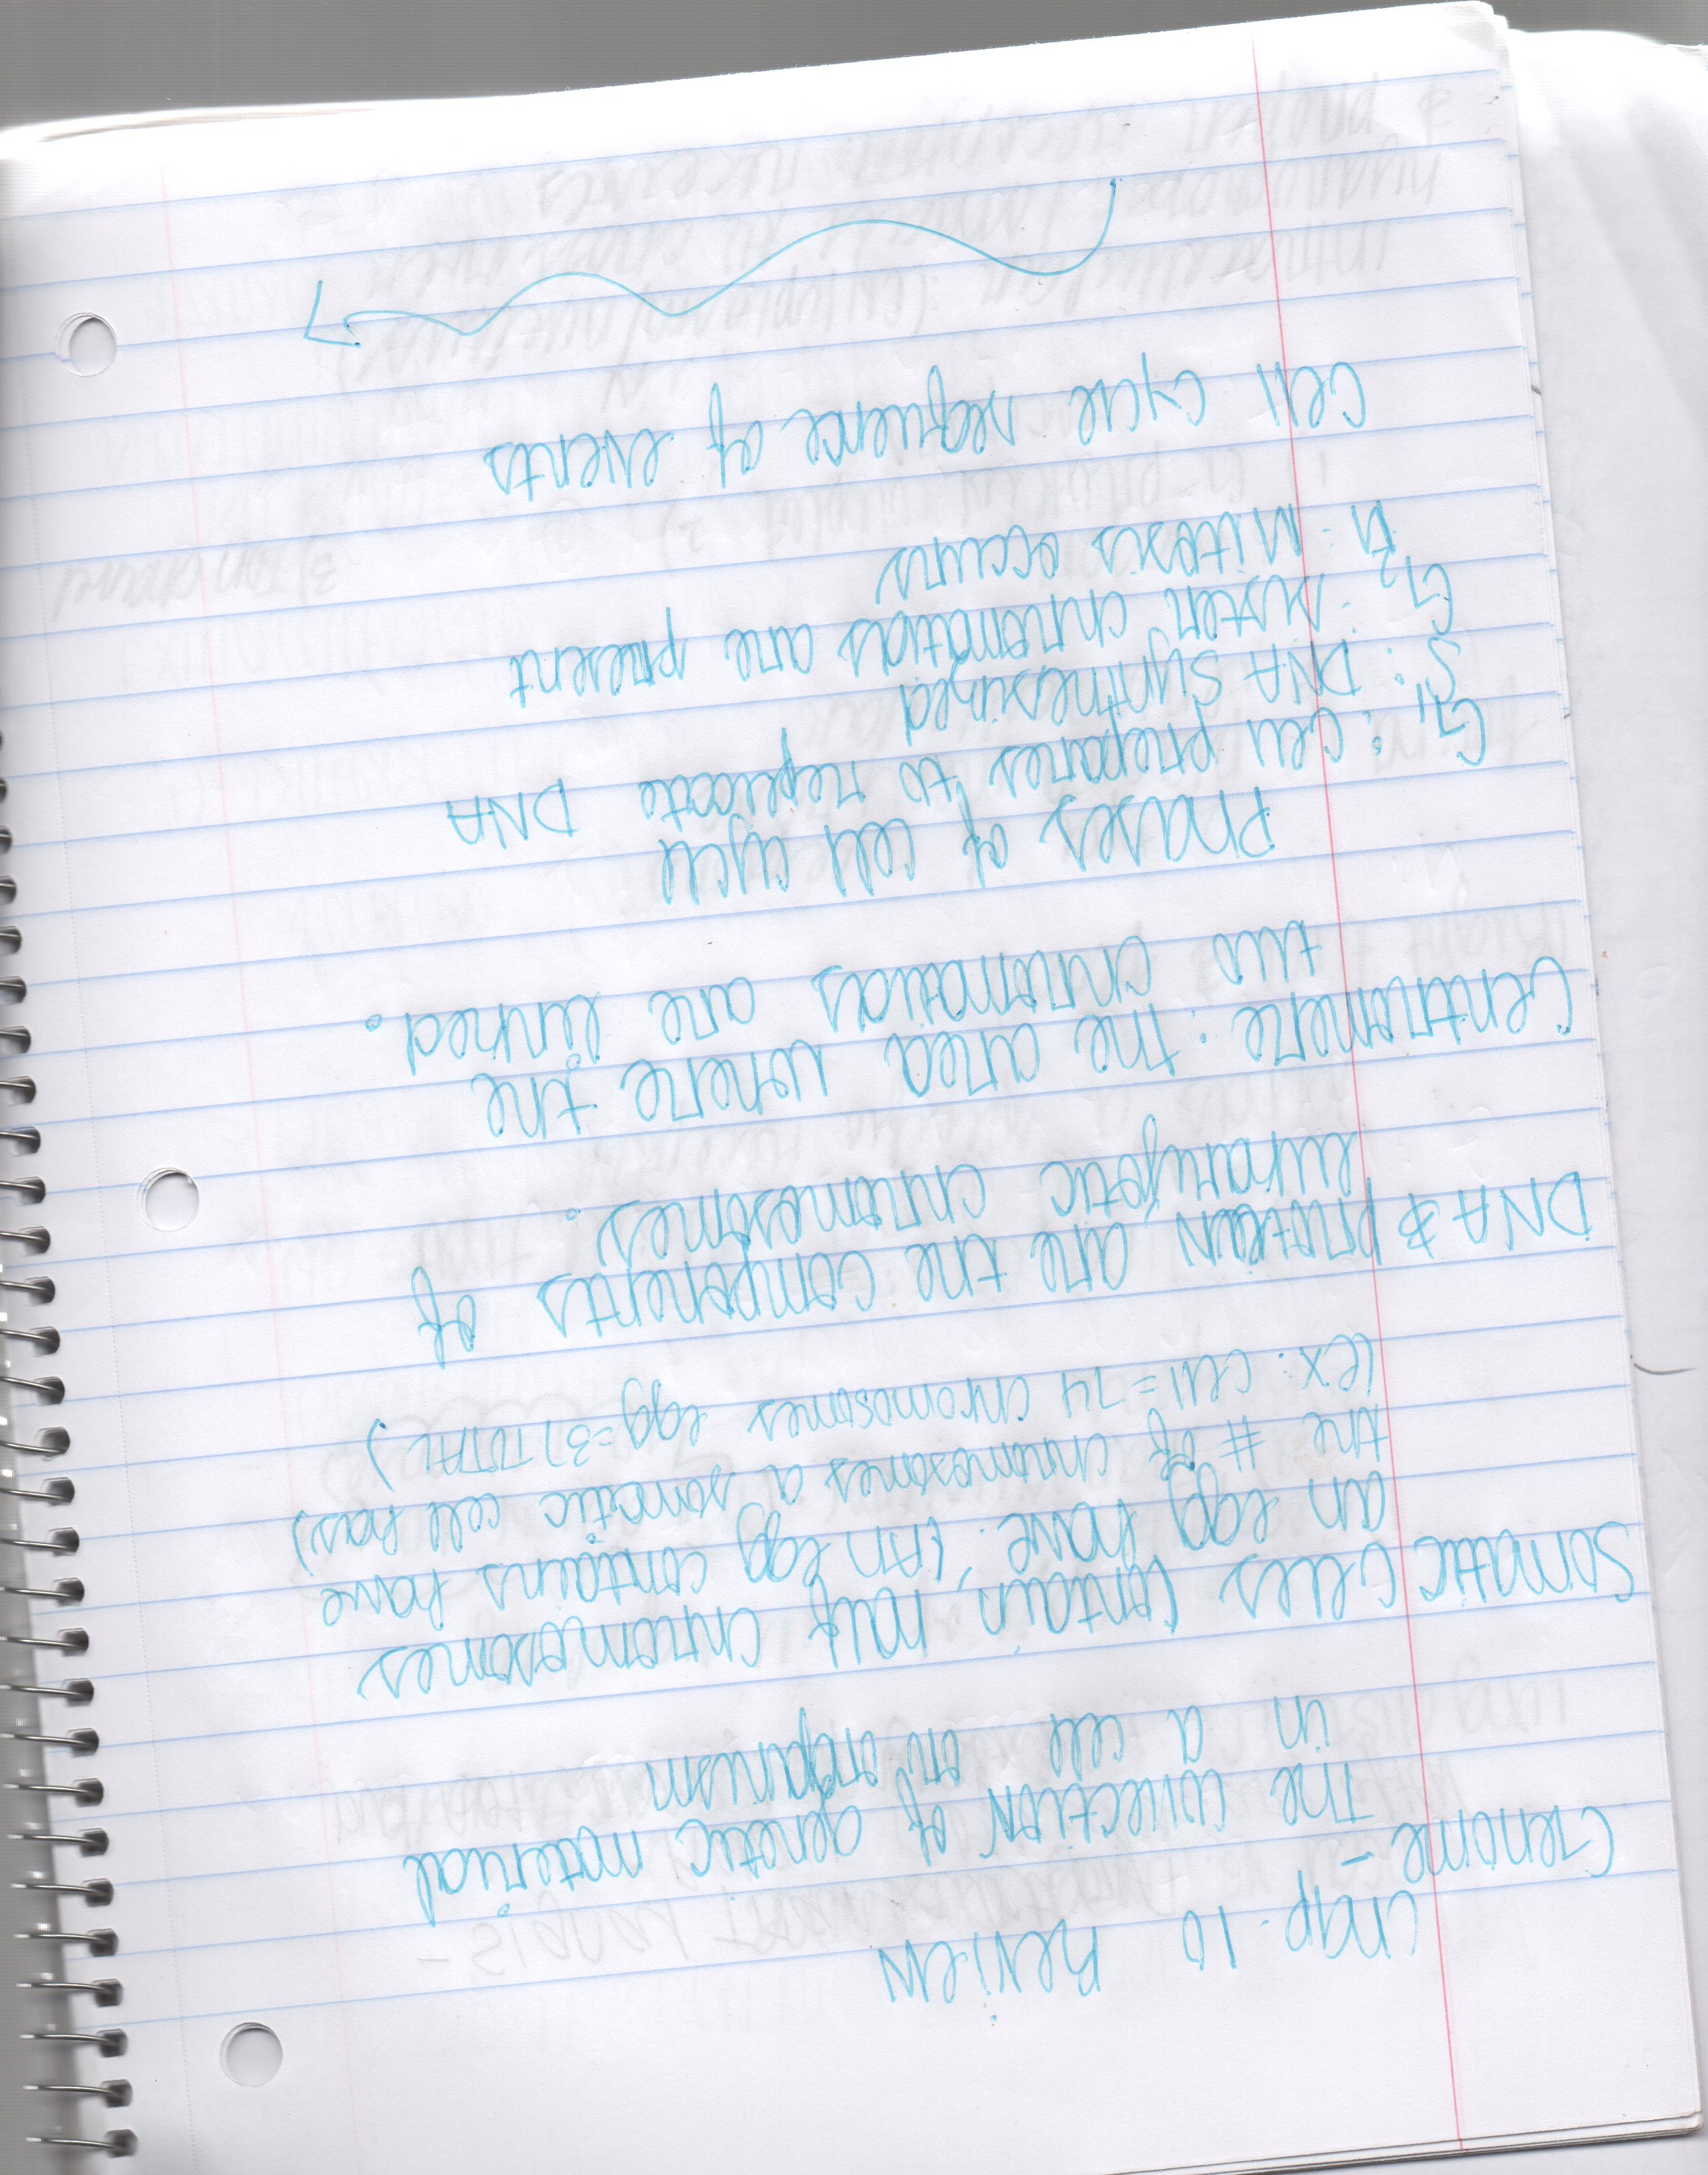 Chap. 10 Review
Genome -
The collection of genetic material
in a cell or organism
Somatic cells contain half chromosomes
an egg have. (An egg contains have
the # of chromosomes a somatic cell has)
(ex: cell = 74 chromosomes egg = 37 TOTAL)
DNA & protein are the components of
eukaryotic chromosomes.
Centromere: The area where the
two chromatids are linked.
Phases of cell cycle
G1: Cell prepares to replicate DNA
S: DNA synthesized
G2: sister chromatids are present
M: Mitosis occurs
Cell cycle sequence of events